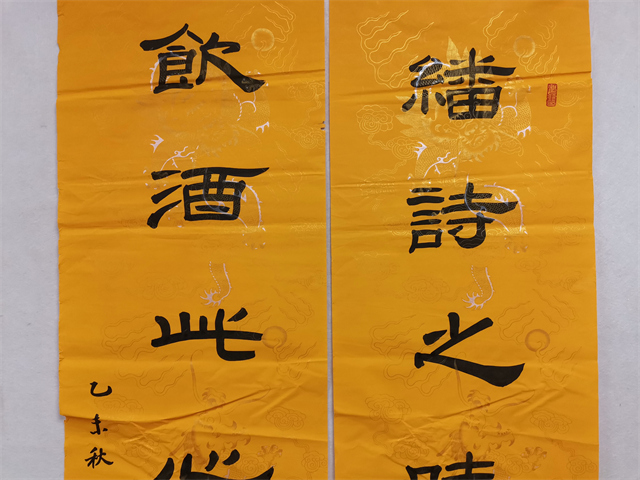 繙詩之
飲酒此
乙未秋